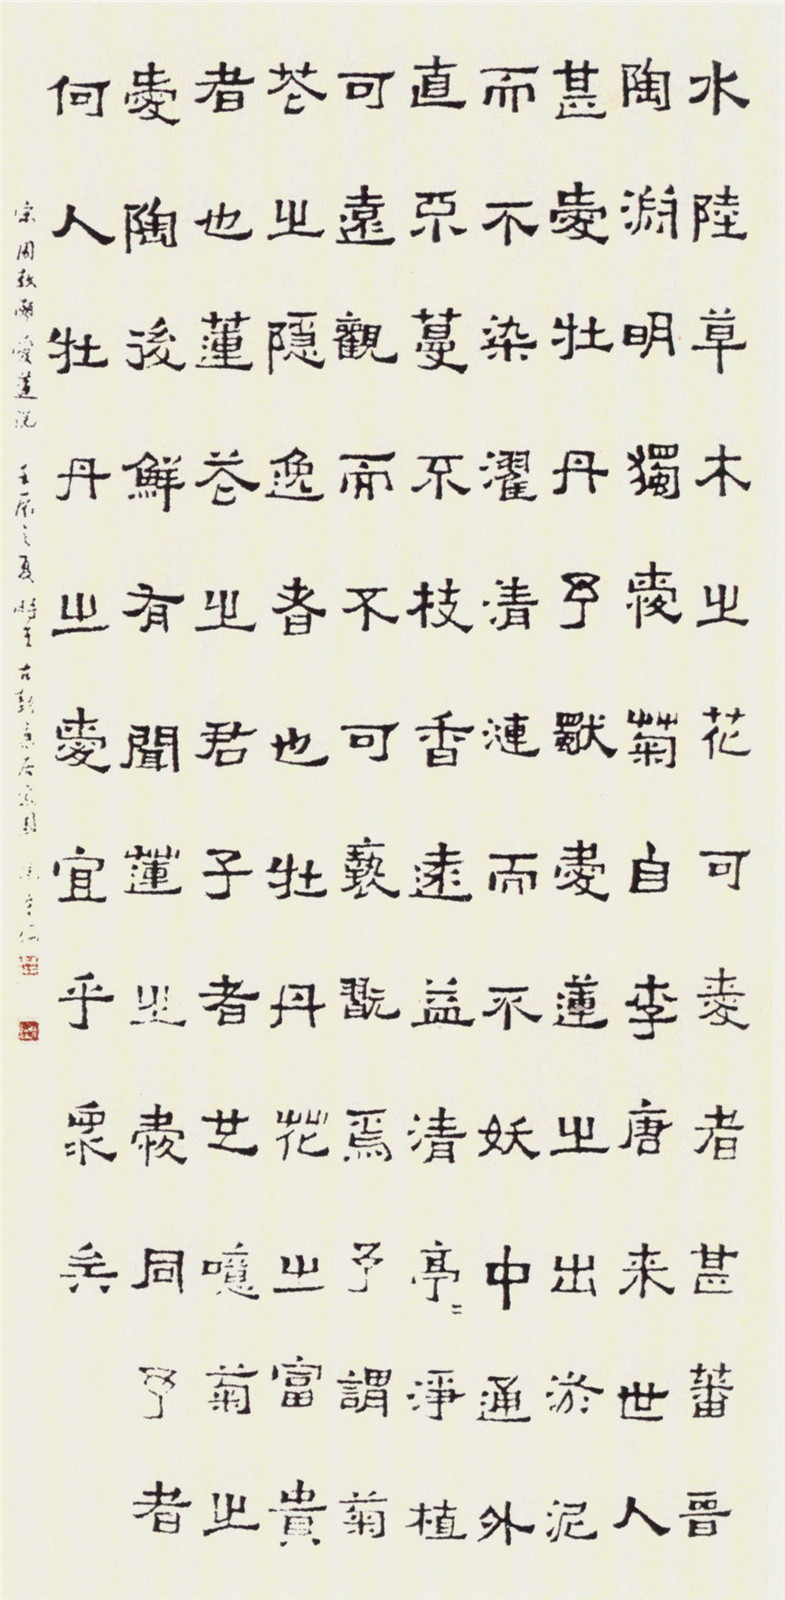 水陸草木之花可愛者甚蕃晉
陶淵明獨愛菊自李唐来世人
甚愛牡丹予獨愛蓮之出淤泥
而不染濯清漣而不妖中通外
直不蔓不枝香遠益清亭〻淨植
可遠觀而不可褻翫焉予謂菊
花之隱逸者也牡丹花之富貴
者也蓮花之君子者也噫菊之
愛陶後鮮有聞蓮之愛同予者
何人牡丹之愛宜乎衆矣
宋周敦頤愛蓮说 壬辰之夏時在古彭